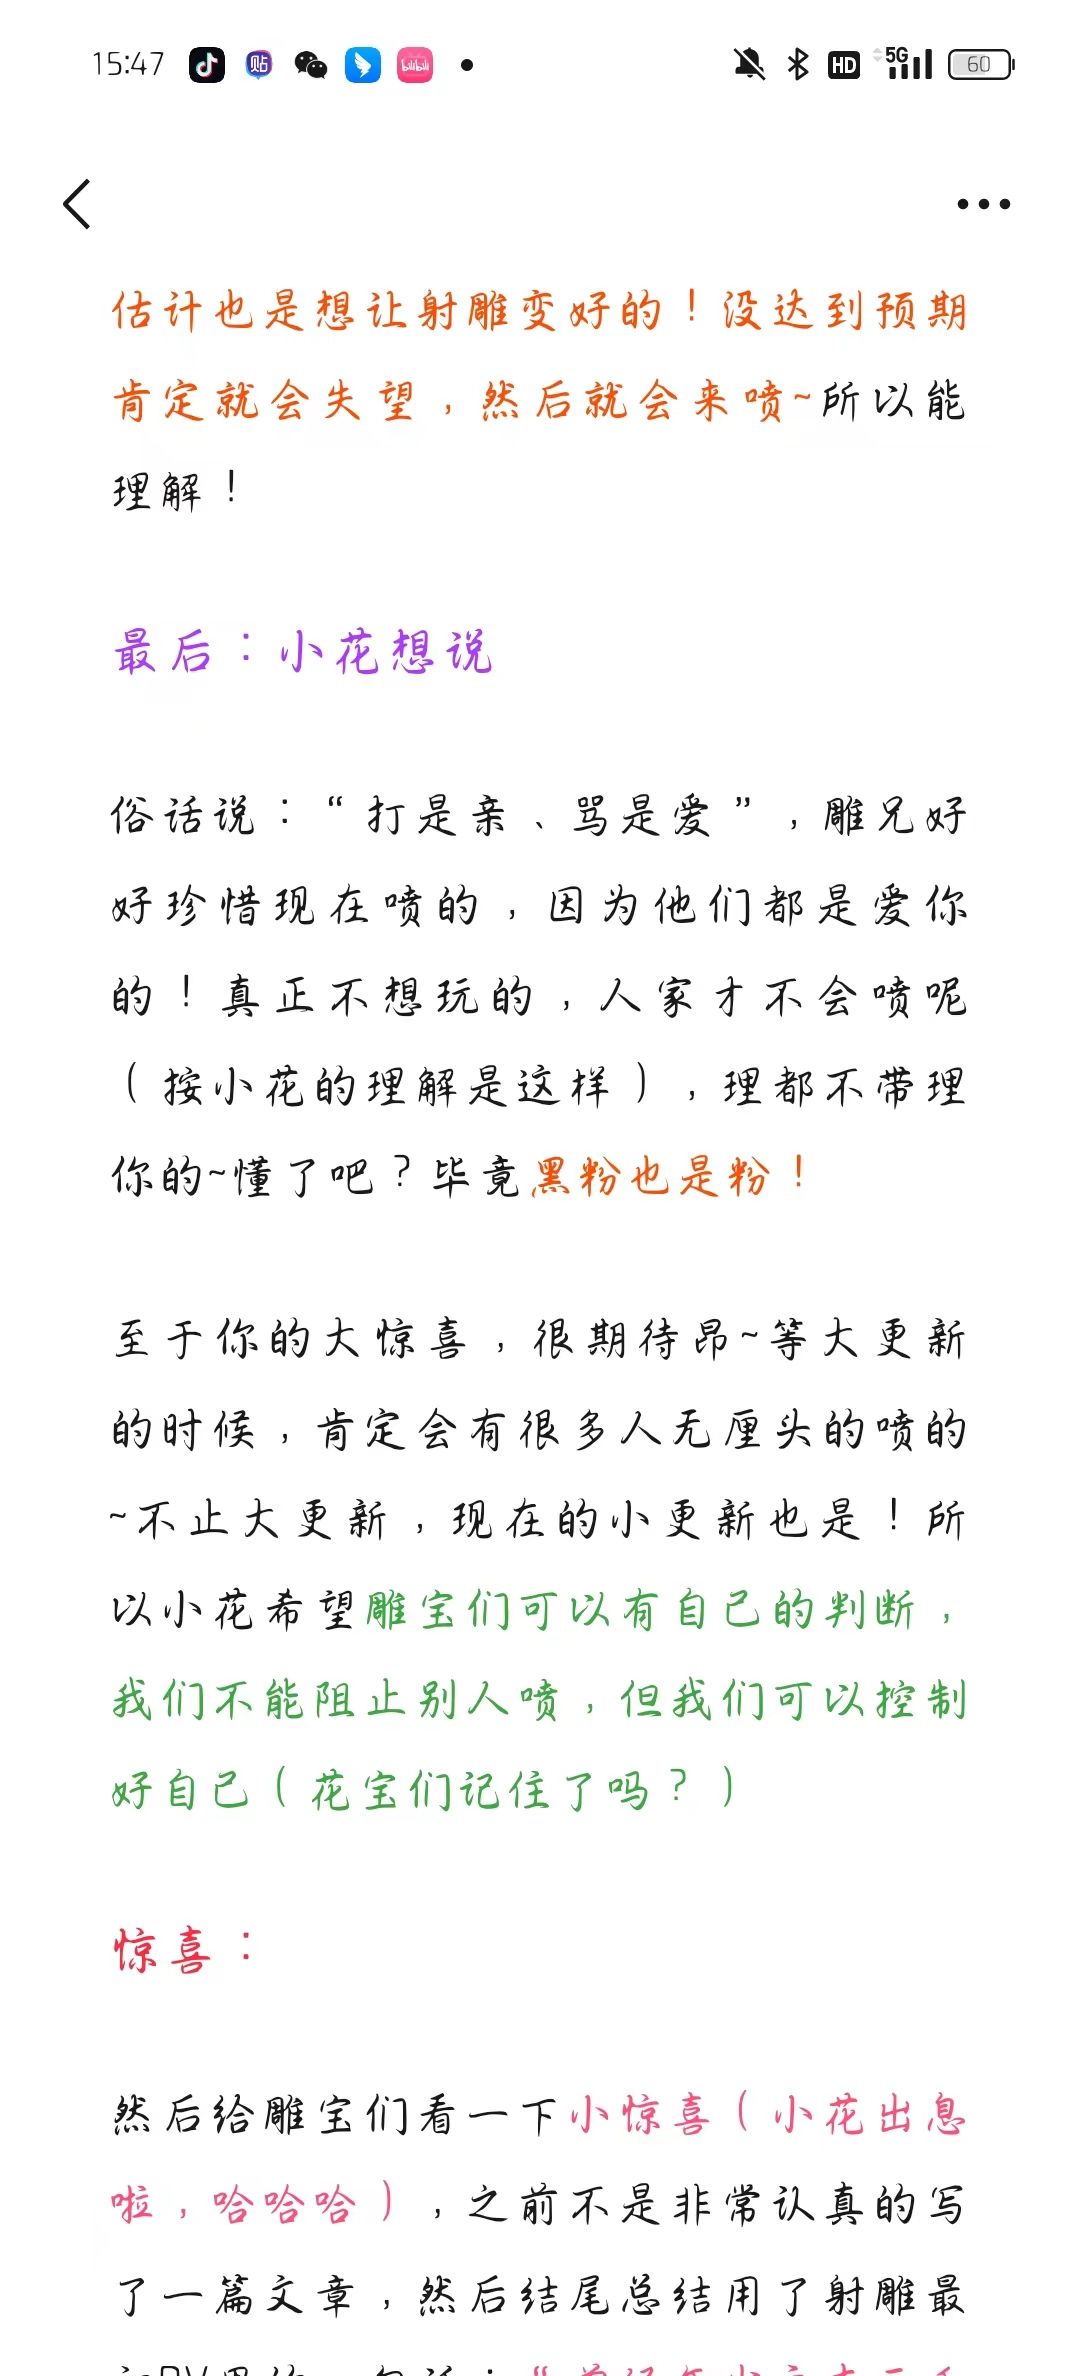 15:47 贴 bilibili HD 5G 60
估计也是想让射雕变好的！没达到预期
肯定就会失望，然后就会来喷~所以能
理解！
最后：小花想说
俗话说：“打是亲、骂是爱”，雕兄好
好珍惜现在喷的，因为他们都是爱你
的！真正不想玩的，人家才不会喷呢
（按小花的理解是这样），理都不带理
你的~懂了吧？毕竟黑粉也是粉！
至于你的大惊喜，很期待昂~等大更新
的时候，肯定会有很多人无厘头的喷的
~不止大更新，现在的小更新也是！所
以小花希望雕宝们可以有自己的判断，
我们不能阻止别人喷，但我们可以控制
好自己（花宝们记住了吗？）
惊喜：
然后给雕宝们看一下小惊喜（小花出息
啦，哈哈哈），之前不是非常认真的写
了一篇文章，然后结尾总结用了射雕最